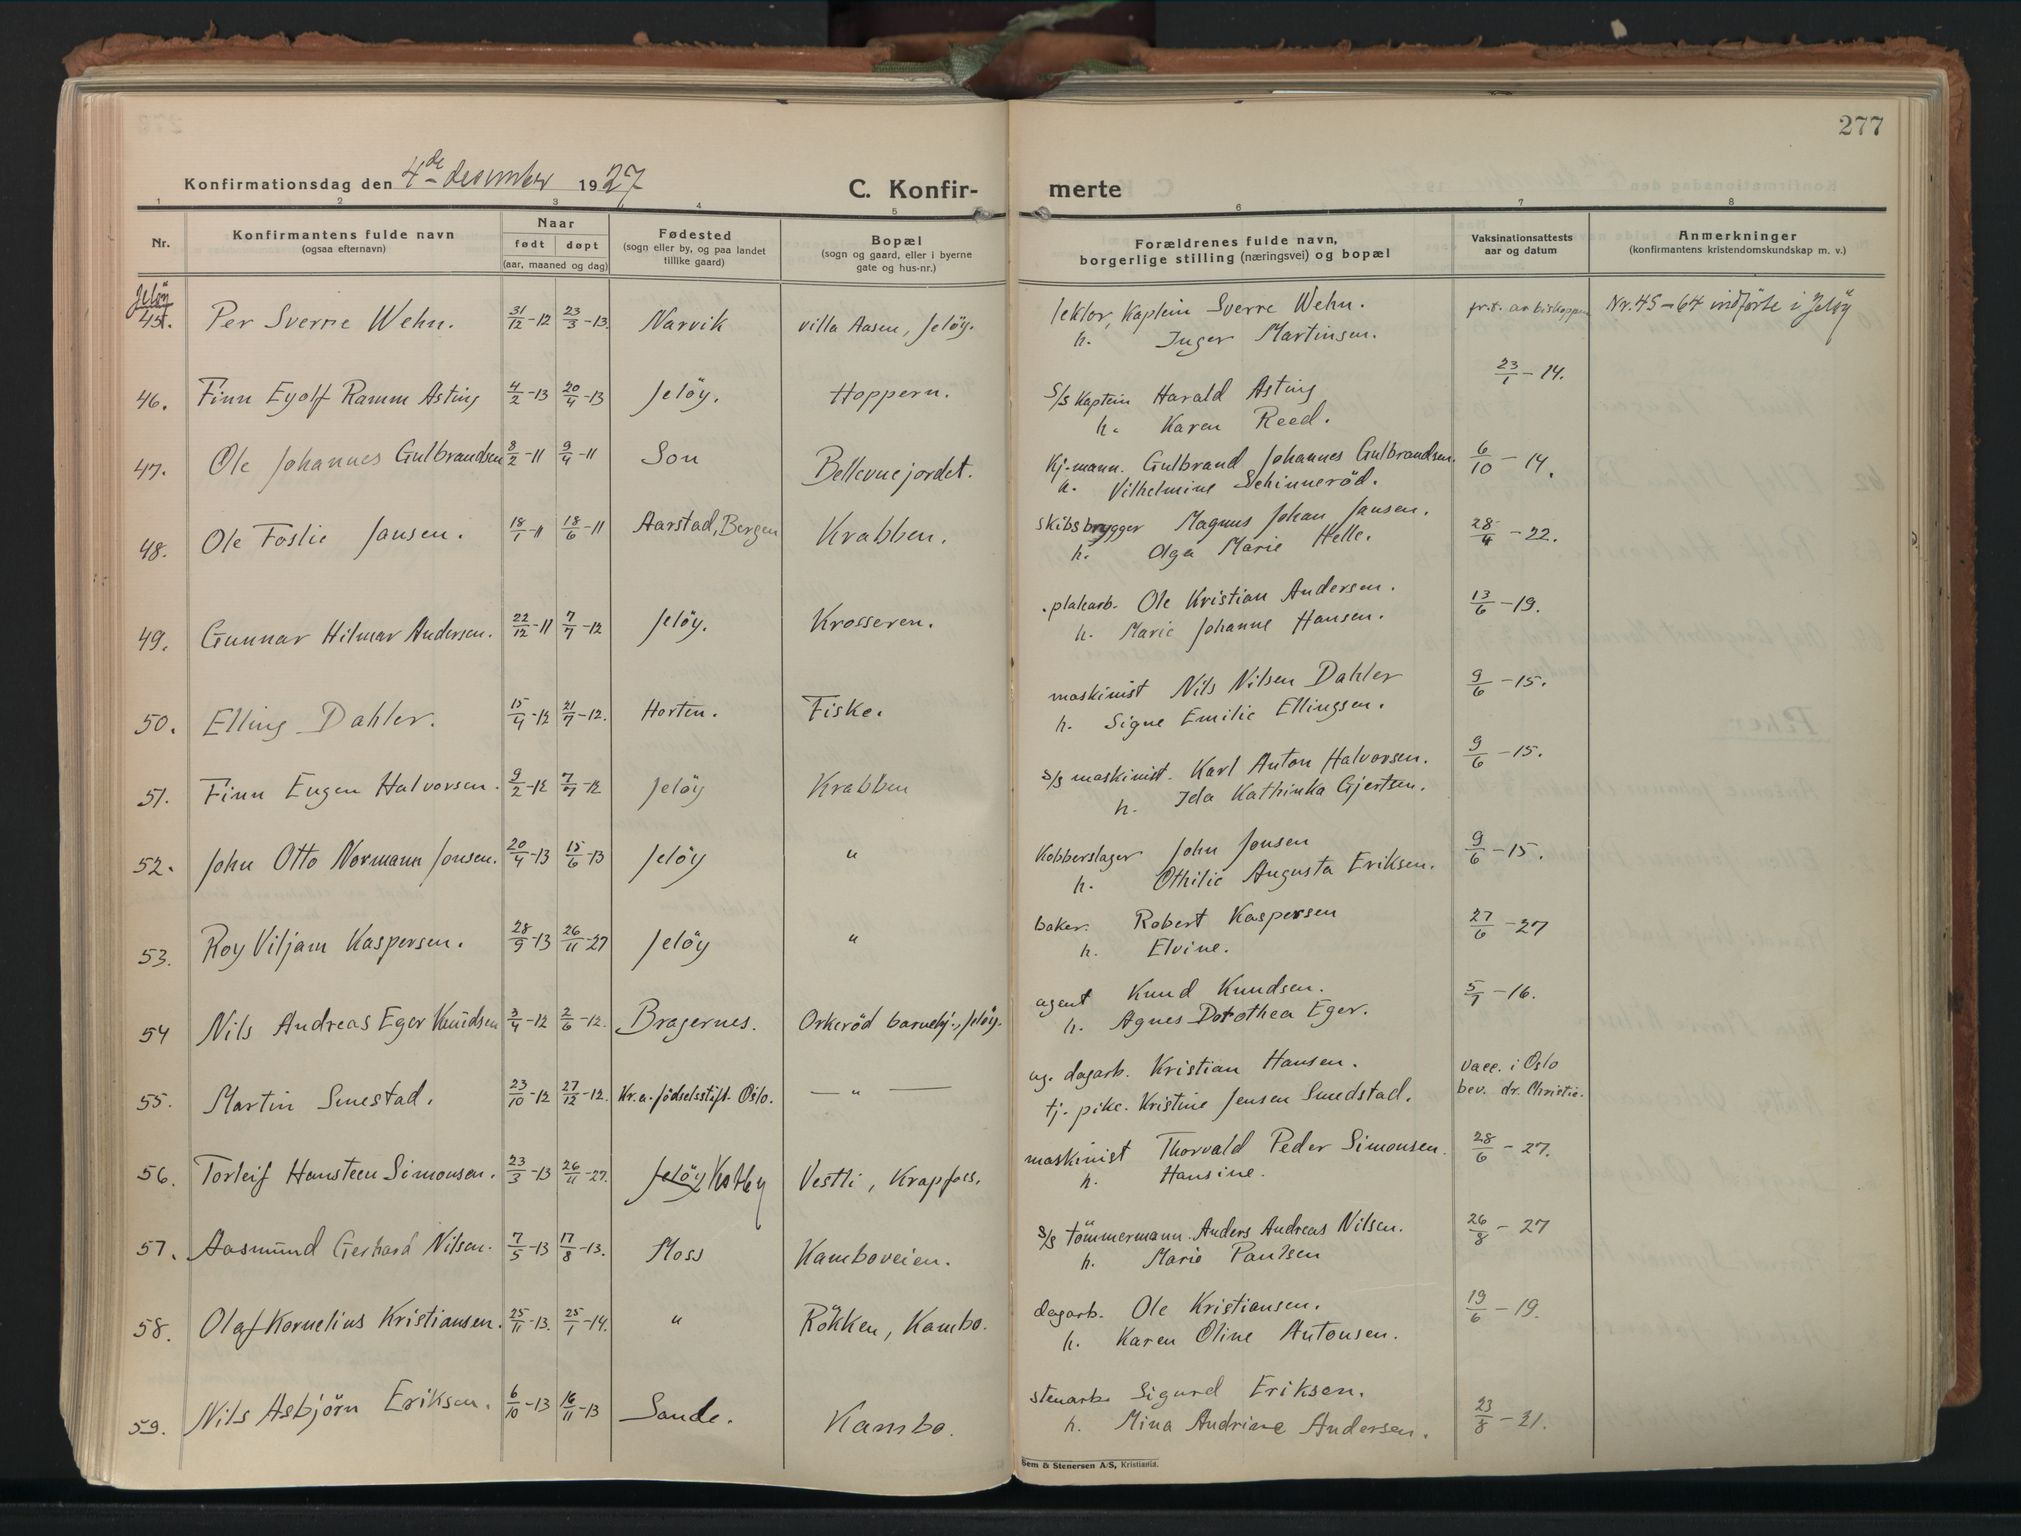 277
Konfirmationsdag den 4de desember 1927
C. Konfir- merte
1 2 3 4 5 6 7 8
Nr.
Konfirmantens fulde navn
(ogsaa efternavn)
Naar
født døpt
(aar, maaned og dag)
Fødested
(sogn eller by, og paa landet
tillike gaard)
Bopæl
(sogn og gaard, eller i byerne
gate og hus-nr.)
Forældrenes fulde navn,
borgerlige stilling (næringsvei) og bopæl
Vaksinationsattests
aar og datum
Anmerkninger
(konfirmantens kristendomskundskap m. v.)
Jeløy
45. Per Sverre Wehn. 31/12-12 23/3-13. Narvik villa Aasen, Jeløy. lektor, Kaptein Sverre Wehn. fr.t. av biskoppen Nr. 45-64 indførte i Jeløy
h. Inger Martinsen.
46. Finn Eyolf Ramm Asting 4/2-13 20/4-13 Jeløy. Hoppern. S/s Kaptein Harald Asting 23/1-14.
h. Karen Reed.
47. Ole Johannes Gulbrandsen 8/2-11 9/4-11 Son Bellevuejordet. Kj-mann. Gulbrand Johannes Gulbrandsen. 6/10-14.
h. Vilhelmine Schinnerød.
48. Ole Foslie Jansen. 18/1-11 18/6-11 Aarstad, Bergen Krabben. skibsbrygger Magnus Johan Jansen. 28/4-22.
h. Olga Marie Helle.
49. Gunnar Hilmar Andersen. 22/12-11 7/7-12 Jeløy. Krosseren. plakarb. Ole Kristian Andersen. 13/6-19.
h. Marie Johanne Hansen.
50. Elling Dahler. 15/4-12 21/7-12. Horten. Fiske. maskinist Nils Nilsen Dahler 9/6-15.
h. Signe Emilie Ellingsen.
51. Finn Eugen Halvorsen. 9/2-12 7/7-12 Jeløy Krabben s/s maskinist. Karl Anton Halvorsen. 9/6-15.
h. Ida Kathinka Gjertsen.
52. John Otto Normann Jonsen. 20/4-13 15/6-13 Jeløy " Kobberslager John Jonsen 9/6-15.
h. Othilie Augusta Eriksen.
53. Roy Viljam Kaspersen. 28/9-13 26/11-27 Jeløy " baker. Robert Kaspersen 27/6-27
h. Elvine.
54 Nils Andreas Eger Knudsen 3/4-12 2/6-12. Bragernes. Orkerød barnehj., Jeløy. agent Knud Knudsen. 5/7-16.
h. Agnes Dorothea Eger.
55. Martin Smestad. 23/10-12 27/12-12. Kr.a. fødselsstift. Oslo. — " — ug. dagarb. Kristian Hansen. vacc. i Oslo
tj. pike. Kristine Jensen Smedstad. bev. dr. Christie.
56. Torleif Hansteen Simonsen. 23/3-13 26/11-27. Jeløy Vestli, Krapfoss. maskinist Thorvald Peder Simonsen. 28/6-27.
h. Hansine.
57. Aasmund Gerhard Nilsen. 7/5-13 17/8-13. Moss Kamboveien. s/s tömmermann. Anders Andreas Nilsen. 26/8-27
h. Marie Paulsen
58. Olaf Kornelius Kristiansen. 25/11-13. 25/1-14. " Rökken, Kambo. dagarb. Ole Kristiansen. 19/6-19.
h. Karen Oline Antonsen.
59. Nils Asbjörn Eriksen. 6/10-13 16/11-13 Sande. Kambo. stenarb. Sigurd Eriksen. 23/8-21.
h. Mina Andrine Andersen.
Sem & Stenersen A/S, Kristiania.